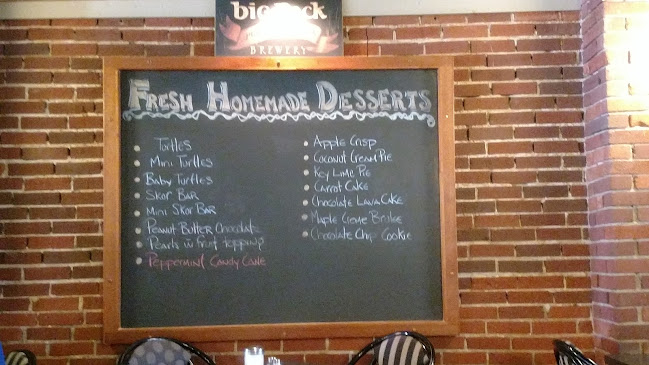 big Rock
BREWERY
FRESH HOMEMADE DESSERTS
Turtles
Mini Turtles
Baby Turtles
Skor Bar
Mini Skor Bar
Peanut Butter Chocolate
Pearls w fruit topping
Peppermint Candy Cane
Apple Crisp
Coconut Cream Pie
Key Lime Pie
Carrot Cake
Chocolate Lava Cake
Maple Creme Brulee
Chocolate Chip Cookie